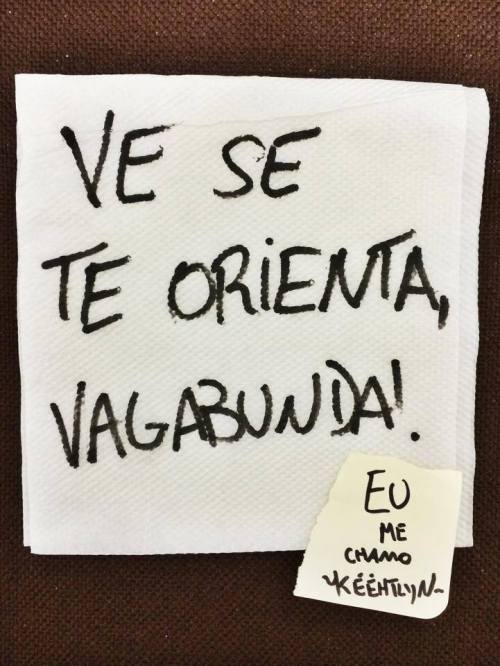 VE SE
TE ORIENTA,
VAGABUNDA!
EU
ME
CHAMO
~KÉÉHTLYN~